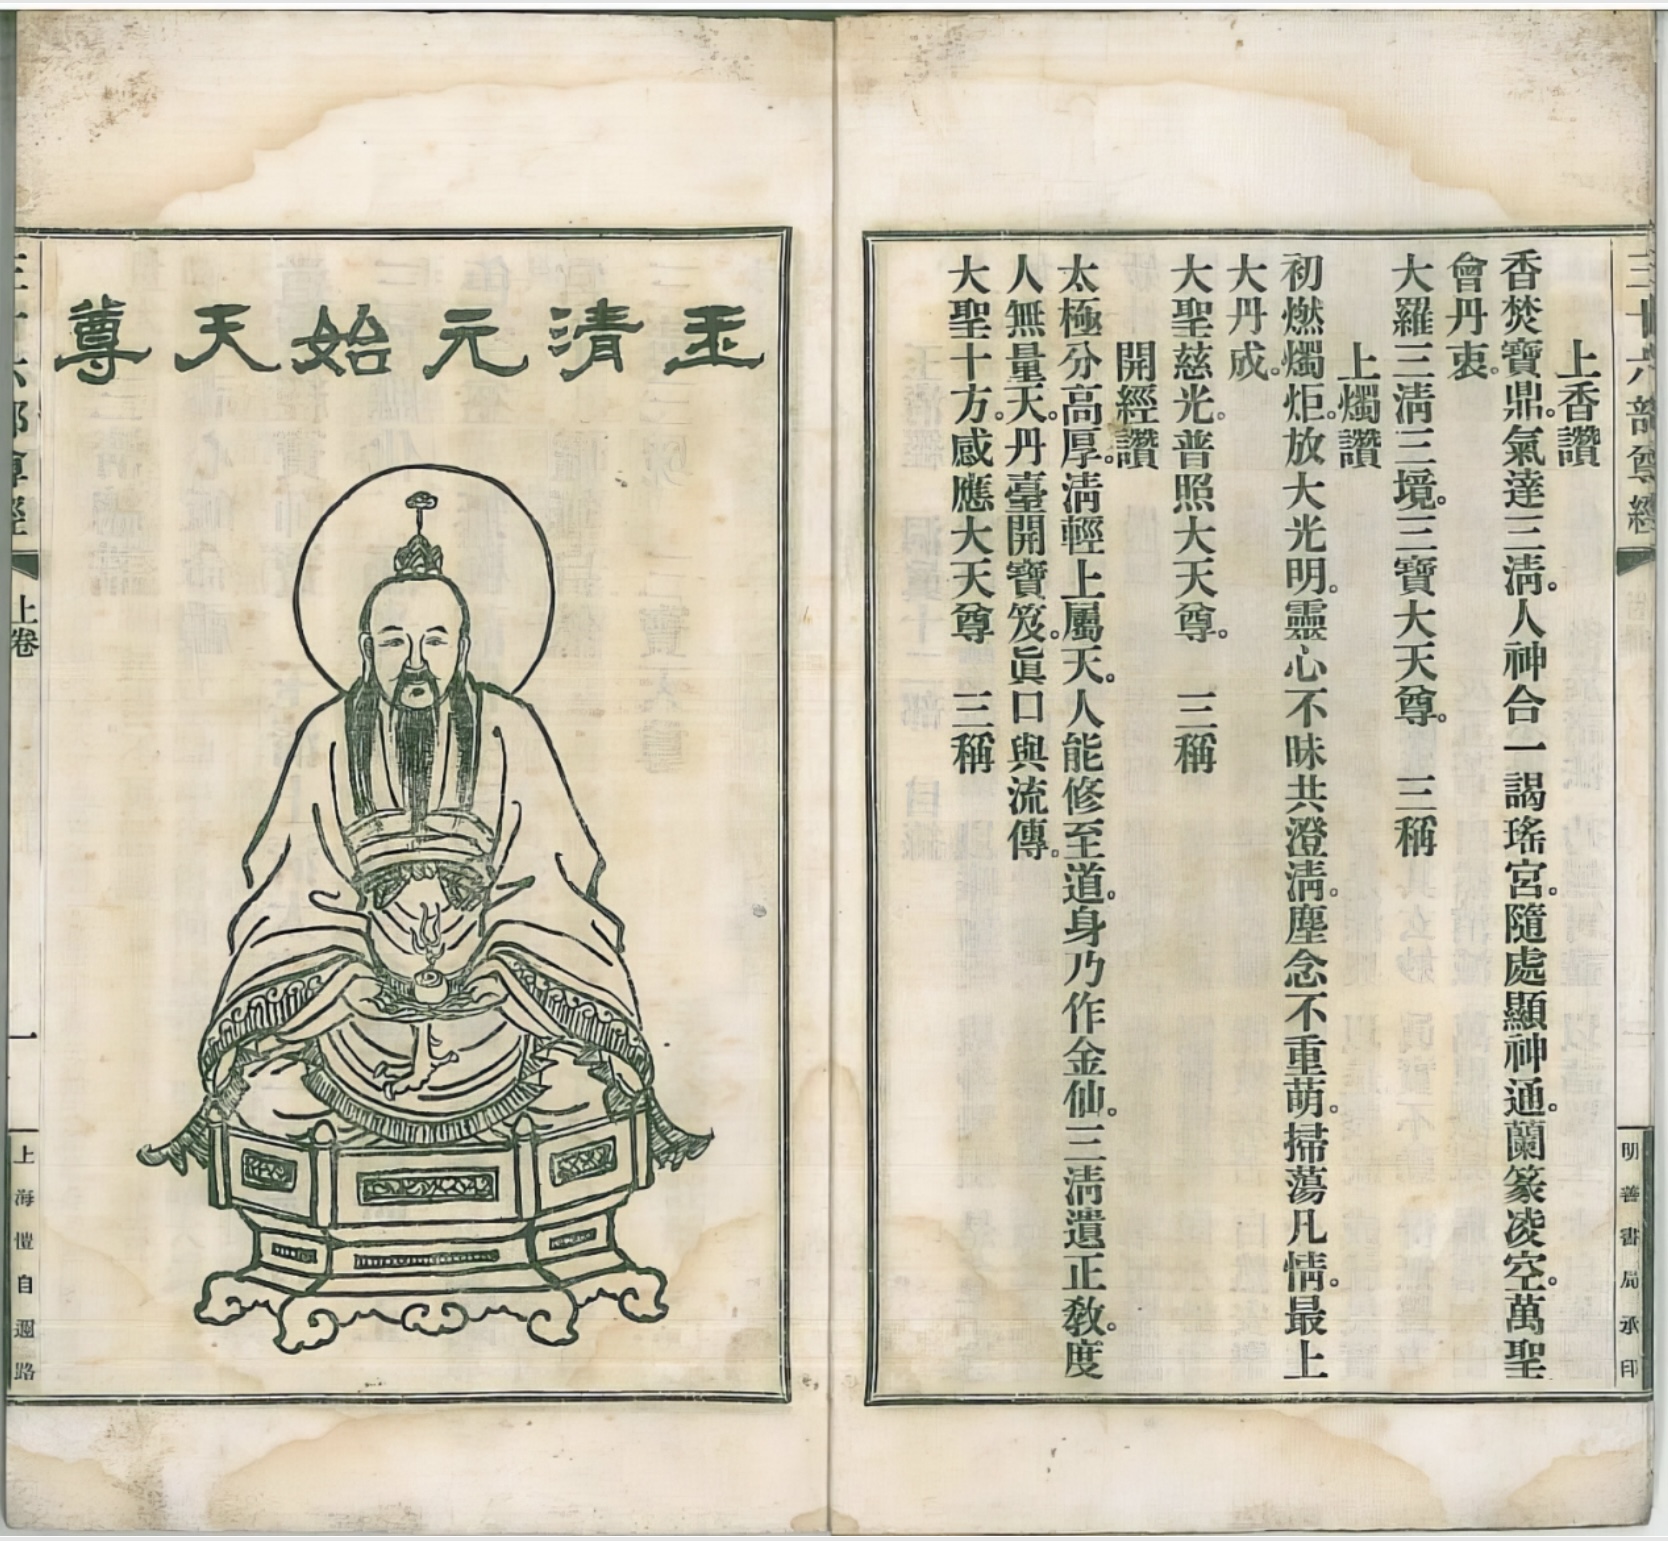 三十六部尊經
明善書局承印
上香讚
香焚寶鼎。氣達三淸。人神合一謁瑤宮。隨處顯神通。蘭篆凌空。萬聖
會丹衷。
大羅三淸三境。三寶大天尊。 三稱
上燭讚
初燃燭炬。放大光明。靈心不昧共澄淸。塵念不重萌。掃蕩凡情。最上
大丹成。
大聖慈光。普照大天尊。 三稱
開經讚
太極分高厚。淸輕上屬天。人能修至道。身乃作金仙。三淸遺正敎。度
人無量天。丹臺開寶笈。眞口與流傳。
大聖十方。感應大天尊 三稱
玉清元始天尊
三十六部尊經
上卷
一
上海愷自邇路